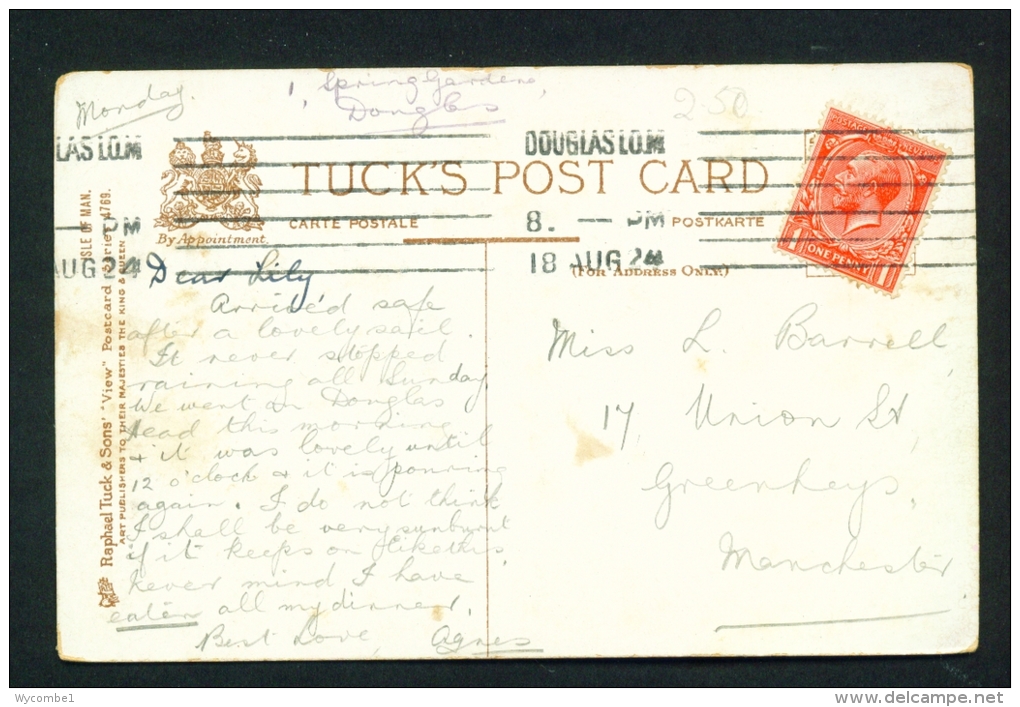 Monday.
1, Spring Gardens,
Douglas
2.50
LAS I.O.M
DOUGLAS I.O.M
TUCK'S POST CARD
CARTE POSTALE
POSTKARTE
By Appointment
PM
8. — PM
AUG 24
18 AUG 24
(FOR ADDRESS ONLY.)
POSTAGE REVENUE
1 ONE PENNY 1
ISLE OF MAN.
Raphael Tuck & Sons' "View" Postcard Series 4769.
ART PUBLISHERS TO THEIR MAJESTIES THE KING & QUEEN
Dear Lily
Arrived safe
after a lovely sail.
It never stopped
raining all Sunday.
We went on Douglas
Head this morning
& it was lovely until
12 o'clock & it is pouring
again. I do not think
I shall be very sunburnt
if it keeps on like this.
Never mind I have
eaten all my dinner.
Best Love, Agnes
Miss L. Barrell,
17, Union St,
Greenheys,
Manchester
Wycombe1
www.delcampe.net